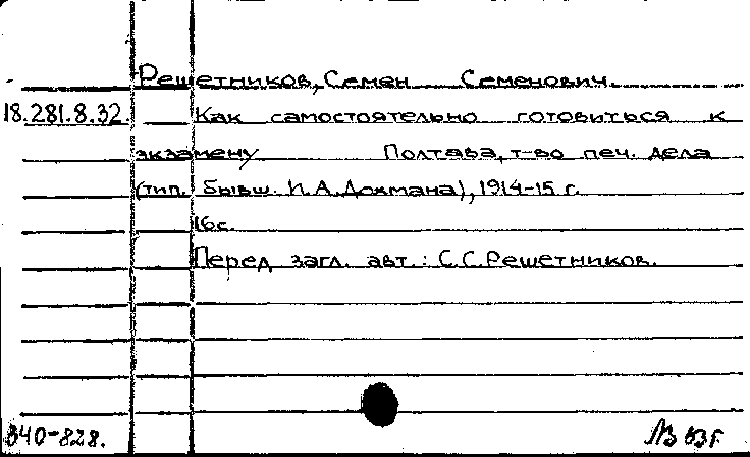 Решетников, Семен Семенович.
18.281.8.32. Как самостоятельно готовиться к
экзамену Полтава, т-во печ. дела
(тип. бывш. И.А.Дохмана), 1914-15 г.
16с.
Перед загл. авт.: С.С.Решетников.
340-828.